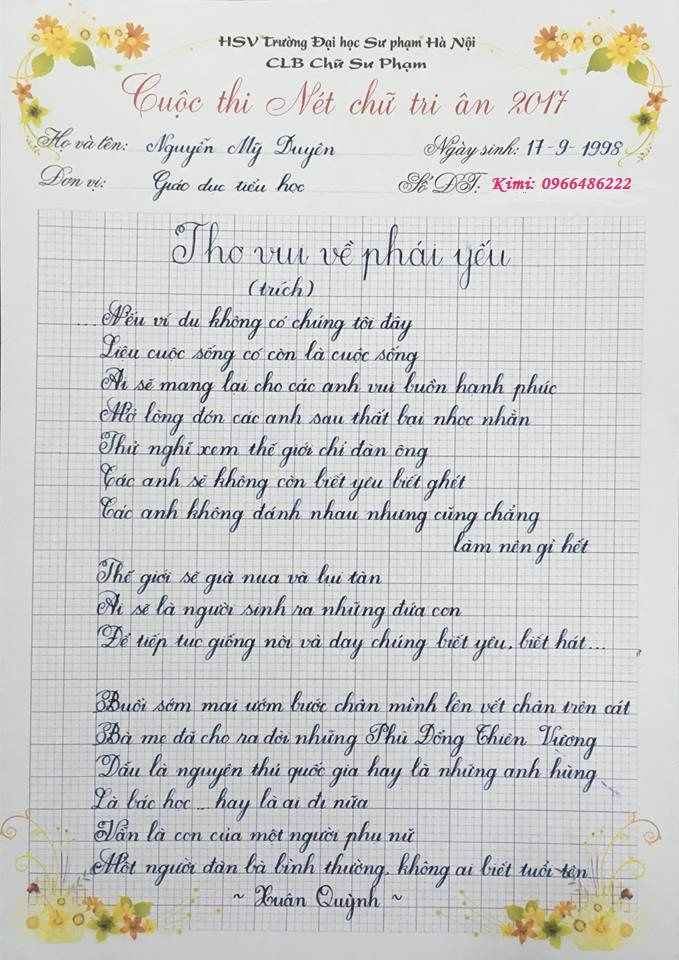 HSV Trường Đại học Sư phạm Hà Nội
CLB Chữ Sư Phạm
Cuộc thi Nét chữ tri ân 2017
Họ và tên: Nguyễn Mỹ Duyên Ngày sinh: 17-9-1998
Đơn vị: Giáo dục tiểu học Số ĐT: Kimi: 0966486222
Thơ vui về phái yếu
(trích)
...Nếu ví dụ không có chúng tôi đây
Liệu cuộc sống có còn là cuộc sống
Ai sẽ mang lại cho các anh vui buồn hạnh phúc
Mở lòng đón các anh sau thất bại nhọc nhằn
Thử nghĩ xem thế giới chỉ đàn ông
Các anh sẽ không còn biết yêu biết ghét
Các anh không đánh nhau nhưng cũng chẳng
làm nên gì hết
Thế giới sẽ già nua và lụi tàn
Ai sẽ là người sinh ra những đứa con
Để tiếp tục giống nòi và dạy chúng biết yêu, biết hát...
Buổi sớm mai ướm bước chân mình lên vết chân trên cát
Bà mẹ đã cho ra đời những Phù Đổng Thiên Vương
Dẫu là nguyên thủ quốc gia hay là những anh hùng
Là bác học... hay là ai đi nữa
Vẫn là con của một người phụ nữ
Một người đàn bà bình thường, không ai biết tuổi tên
~ Xuân Quỳnh ~